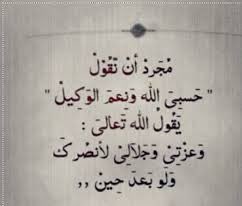 مُجَردْ أنْ تَقُوْل
" حَسبِيَ الله وَنِعمَ الوَكِيلْ "
يَقُولُ الله تَعالىَ :
وَعزتِيْ وَجَلالِيْ لأنْصُركَ
وَلو بَعدَ حِينْ ,,